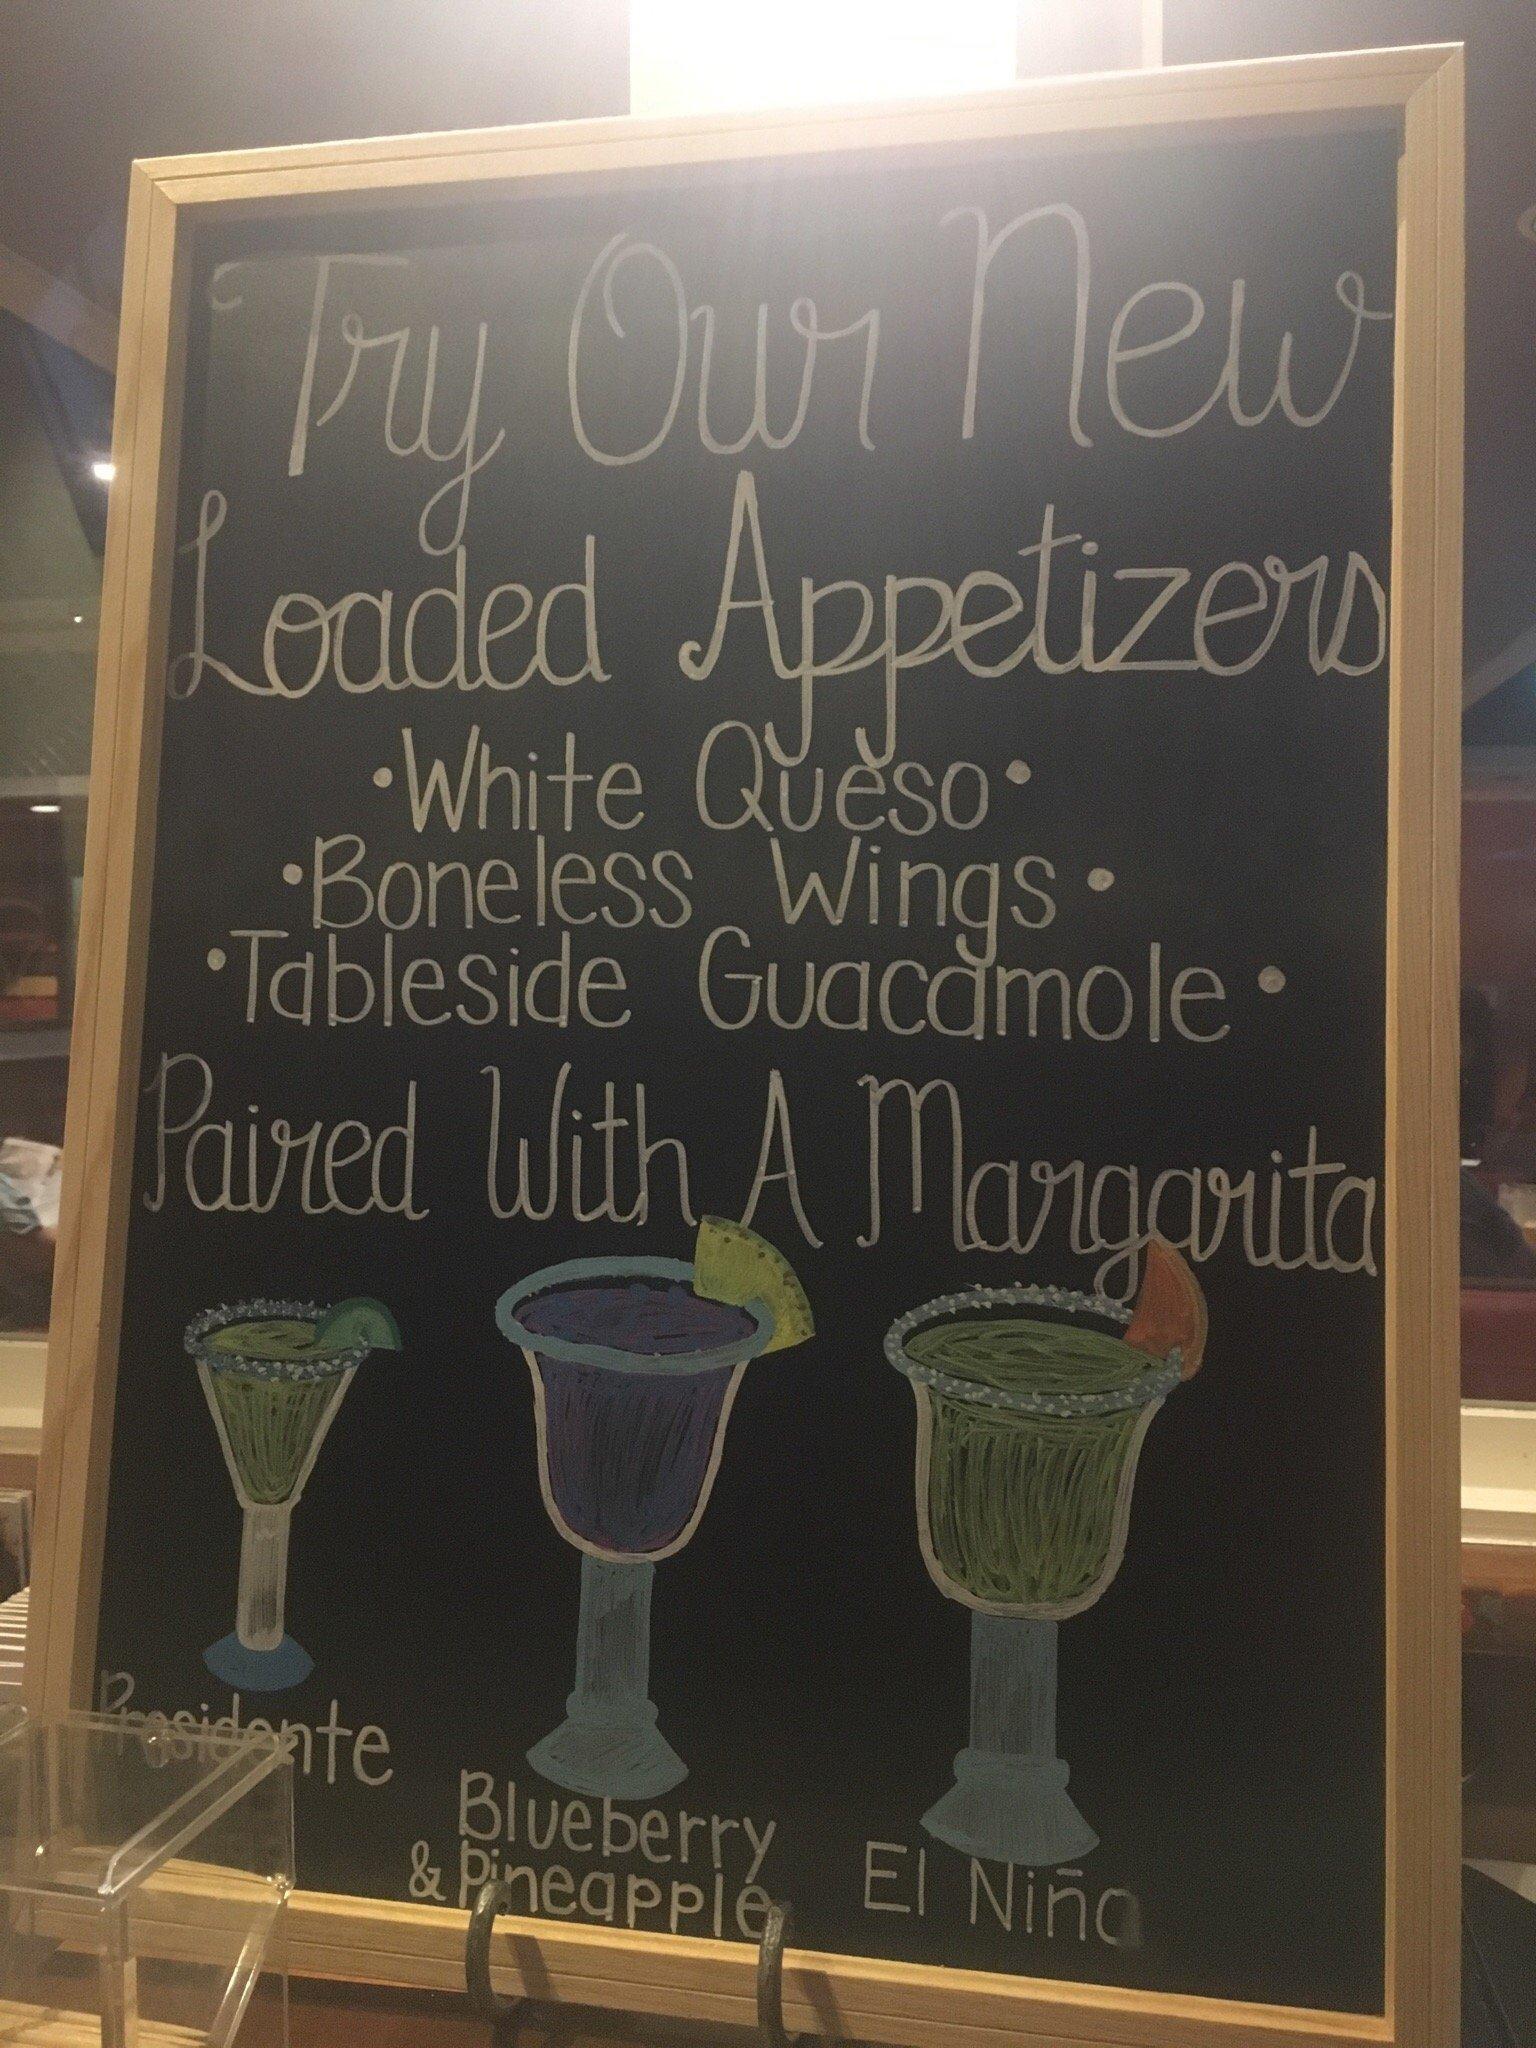 Try Our New
Loaded Appetizers
•White Queso•
•Boneless Wings•
•Tableside Guacamole•
Paired With A Margarita
Presidente
Blueberry
& Pineapple
El Niño